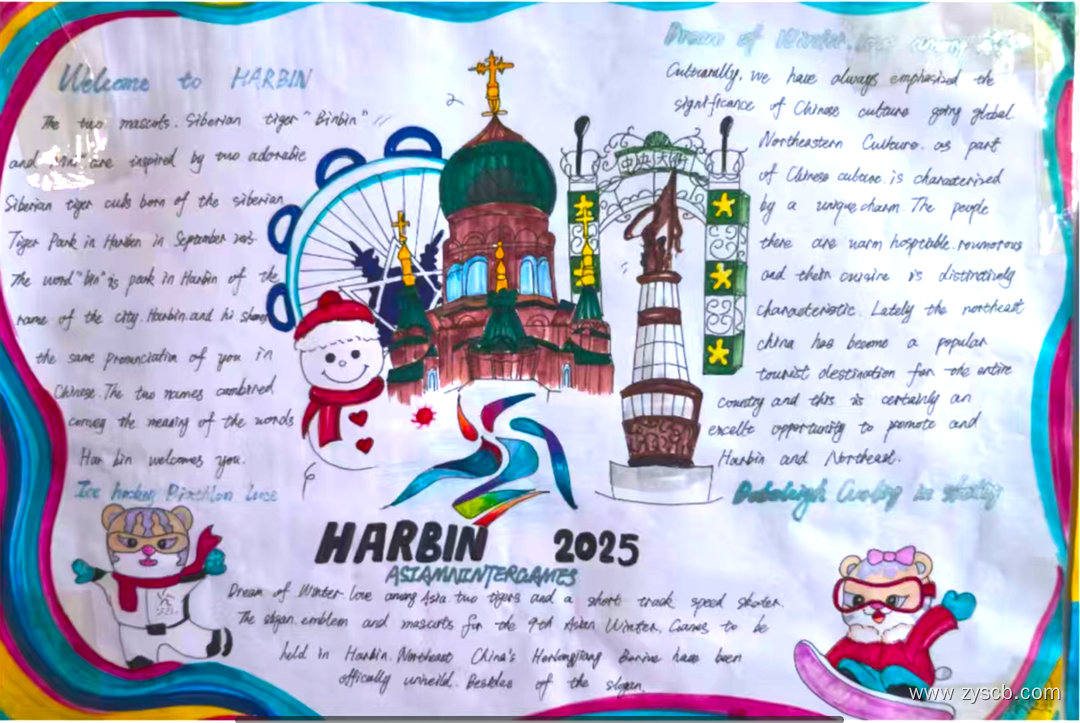 Welcome to HARBIN
The two mascots. Siberian tiger "Binbin"
and are inspired by two adorable
Siberian tiger cubs born of the siberian
Tiger Park in Harbin in September
The word "bin" is park in Harbin of the
name of the city. Harbin.and
the same pronunciation of you in
Chinese. The two names combined
convey the meaning of the words
Har bin welcomes you.
Ice hockey Biathlon Luge
Dream of Winter. love among
Culturally. we have always emphasised the
significance of Chinese culture going global
Northeastern Culture. as part
of Chinese culture. is characterised
by a unique charm. The people
there are warm hosptable. roumorous
and their cuisine is distinctively
characteristic. Lately the northeast
china has become a popular
tourist destination for the entire
country and this is certainly an
excellte opportunity to promote and
Harbin and Northeast.
中央大街
HARBIN 2025
ASIAMNINTERGAMES
Dream of Winter. love among Asia. two tigers and a short track speed skater.
The slogan. emblem and mascots for the 9th Asian Winter. Games to be
held in Harbin. Northeast China's have been
offically unveild. Besides of the slogan.
www.zyscb.com